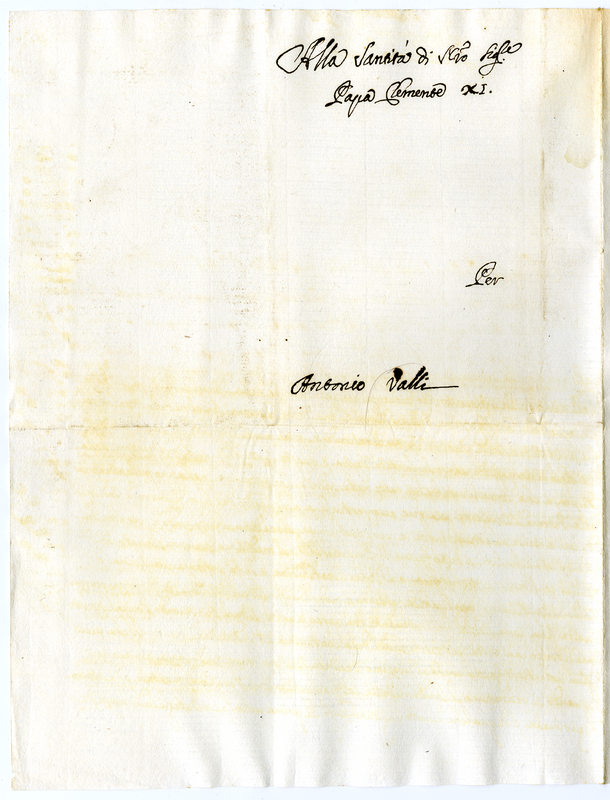 Alla Santità di Nro Sigre
Papa Clemente XI.
Per
Antonio Valli